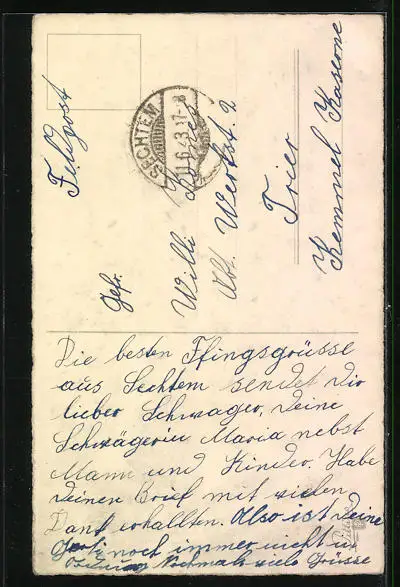 Feldpost
SECHTEM
11.6.43.17-8
Gefr.
Willi
Abt. Werkst 2
Trier
Kemmel Kaserne
Die besten Pfingsgrüsse
aus Sechtem sendet Dir
lieber Schwager, Deine
Schwägerin Maria nebst
Mann und Kinder. Habe
Deinen Brief mit vielen
Dank erhallten. Also ist Deine
noch immer nicht in
Nochmals viele Grüsse